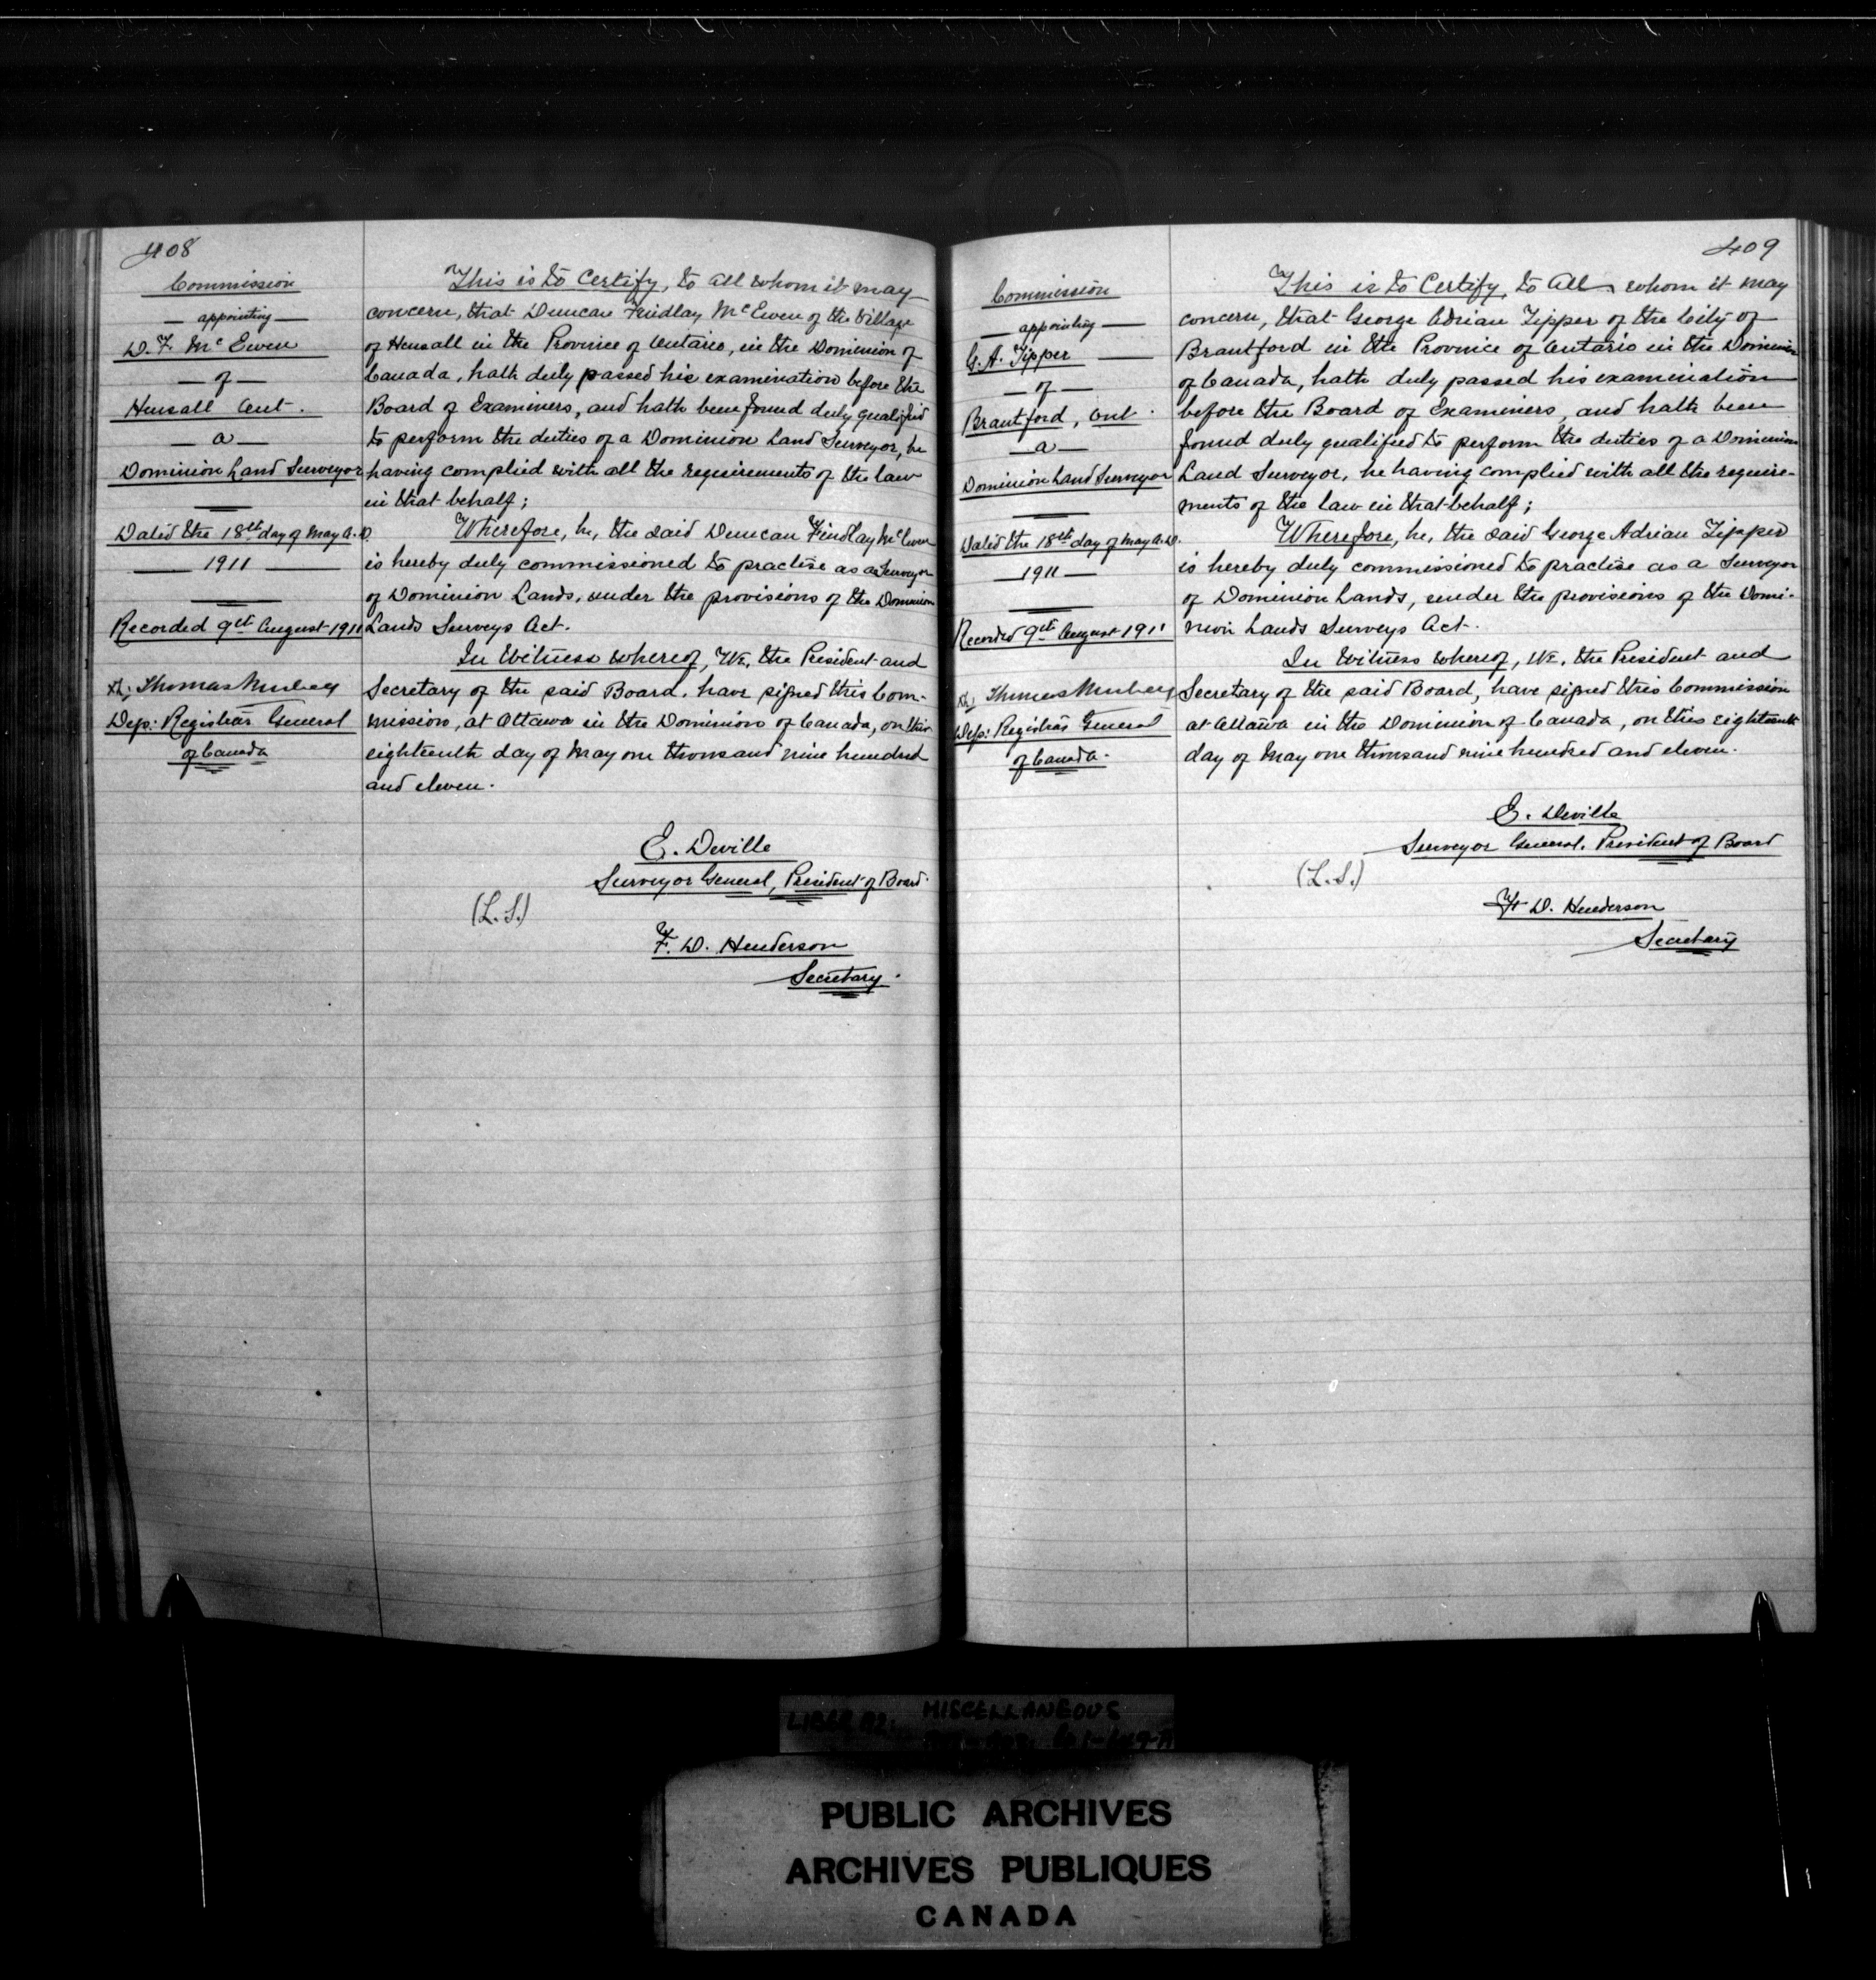 408
Commission
— appointing —
D. F. McEwen
— of —
Hensall Ont.
— a —
Dominion Land Surveyor
Dated the 18th day of May A.D.
1911
Recorded 9th August 1911
Dep: Registrar General
of Canada
This is to Certify, to all whom it may
concern, that Duncan Findlay McEwen of the Village
of Hensall in the Province of Ontario, in the Dominion of
Canada, hath duly passed his examination before the
Board of Examiners, and hath been found duly qualified
to perform the duties of a Dominion Land Surveyor, he
having complied with all the requirements of the law
in that behalf;
Wherefore, he, the said Duncan Findlay McEwen
is hereby duly commissioned to practise as a Surveyor
of Dominion Lands, under the provisions of the Dominion
Lands Surveys Act.
In Witness whereof, We, the President and
Secretary of the said Board, have signed this Com-
mission, at Ottawa in the Dominion of Canada, on this
eighteenth day of May one thousand nine hundred
and eleven.
E. Deville
Surveyor General, President of Board.
(L.S.)
F. D. Henderson
Secretary.
409
Commission
— appointing —
G. A. Tipper
— of —
Brantford, Ont.
— a —
Dominion Land Surveyor
Dated the 18th day of May A.D.
1911
Recorded 9th August 1911
Dep: Registrar General
of Canada.
This is to Certify, to all whom it may
concern, that George Adrian Tipper of the City of
Brantford in the Province of Ontario in the Dominion
of Canada, hath duly passed his examination
before the Board of Examiners, and hath been
found duly qualified to perform the duties of a Dominion
Land Surveyor, he having complied with all the require-
ments of the law in that behalf;
Wherefore, he, the said George Adrian Tipper
is hereby duly commissioned to practise as a Surveyor
of Dominion Lands, under the provisions of the Domi-
nion Lands Surveys Act.
In Witness whereof, We, the President and
Secretary of the said Board, have signed this Commission
at Ottawa in the Dominion of Canada, on this eighteenth
day of May one thousand nine hundred and eleven.
E. Deville
Surveyor General, President of Board
(L.S.)
F. D. Henderson
Secretary
MISCELLANEOUS
LIBER
PUBLIC ARCHIVES
ARCHIVES PUBLIQUES
CANADA